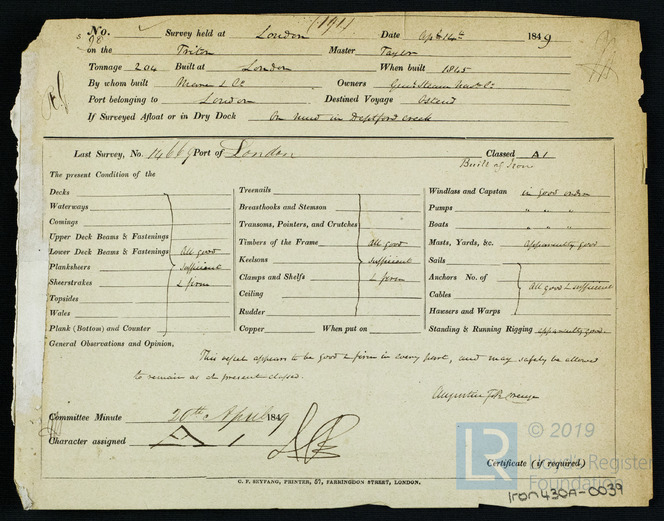 No. Survey held at London (1911 Date Apl 14th 1849
on the Triton Master Taylor
Tonnage 204 Built at London When built 1845
By whom built & Co Owners Genl Steam Navn Co
Port belonging to London Destined Voyage Ostend
If Surveyed Afloat or in Dry Dock On mud in Deptford Creek
Last Survey, No. 14669 Port of London Classed A1
Built of Iron
The present Condition of the
Decks
Waterways
Comings
Upper Deck Beams & Fastenings
Lower Deck Beams & Fastenings All good
Planksheers sufficient
Sheerstrakes & firm
Topsides
Wales
Plank (Bottom) and Counter
Treenails
Breasthooks and Stemson
Transoms, Pointers, and Crutches
Timbers of the Frame All good
Keelsons sufficient
Clamps and Shelfs & firm
Ceiling
Rudder
Copper When put on
Windlass and Capstan in good order
Pumps " " "
Boats " " "
Masts, Yards, &c. apparently good
Sails
Anchors No. of All good & sufficient
Cables
Hawsers and Warps
Standing & Running Rigging apparently good
General Observations and Opinion,
This vessel appears to be good & firm in every part, and may safely be allowed
to remain as at present classed.
Committee Minute 20th April 1849
Character assigned A 1
© 2019
LR Lloyd's Register
Foundation
Certificate (if required.)
G. F. SEYFANG, PRINTER, 57, FARRINGDON STREET, LONDON.
Iron430A-0039